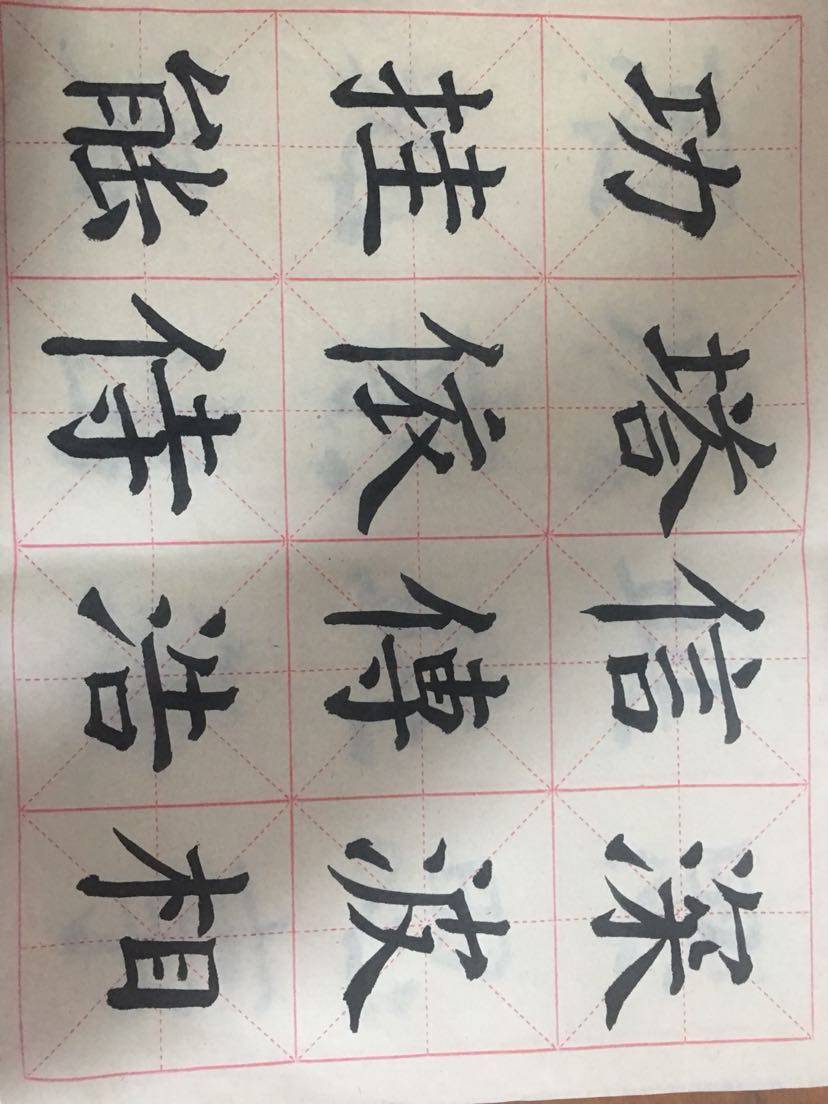 功塔信深
挂依傳波
能侍浩相